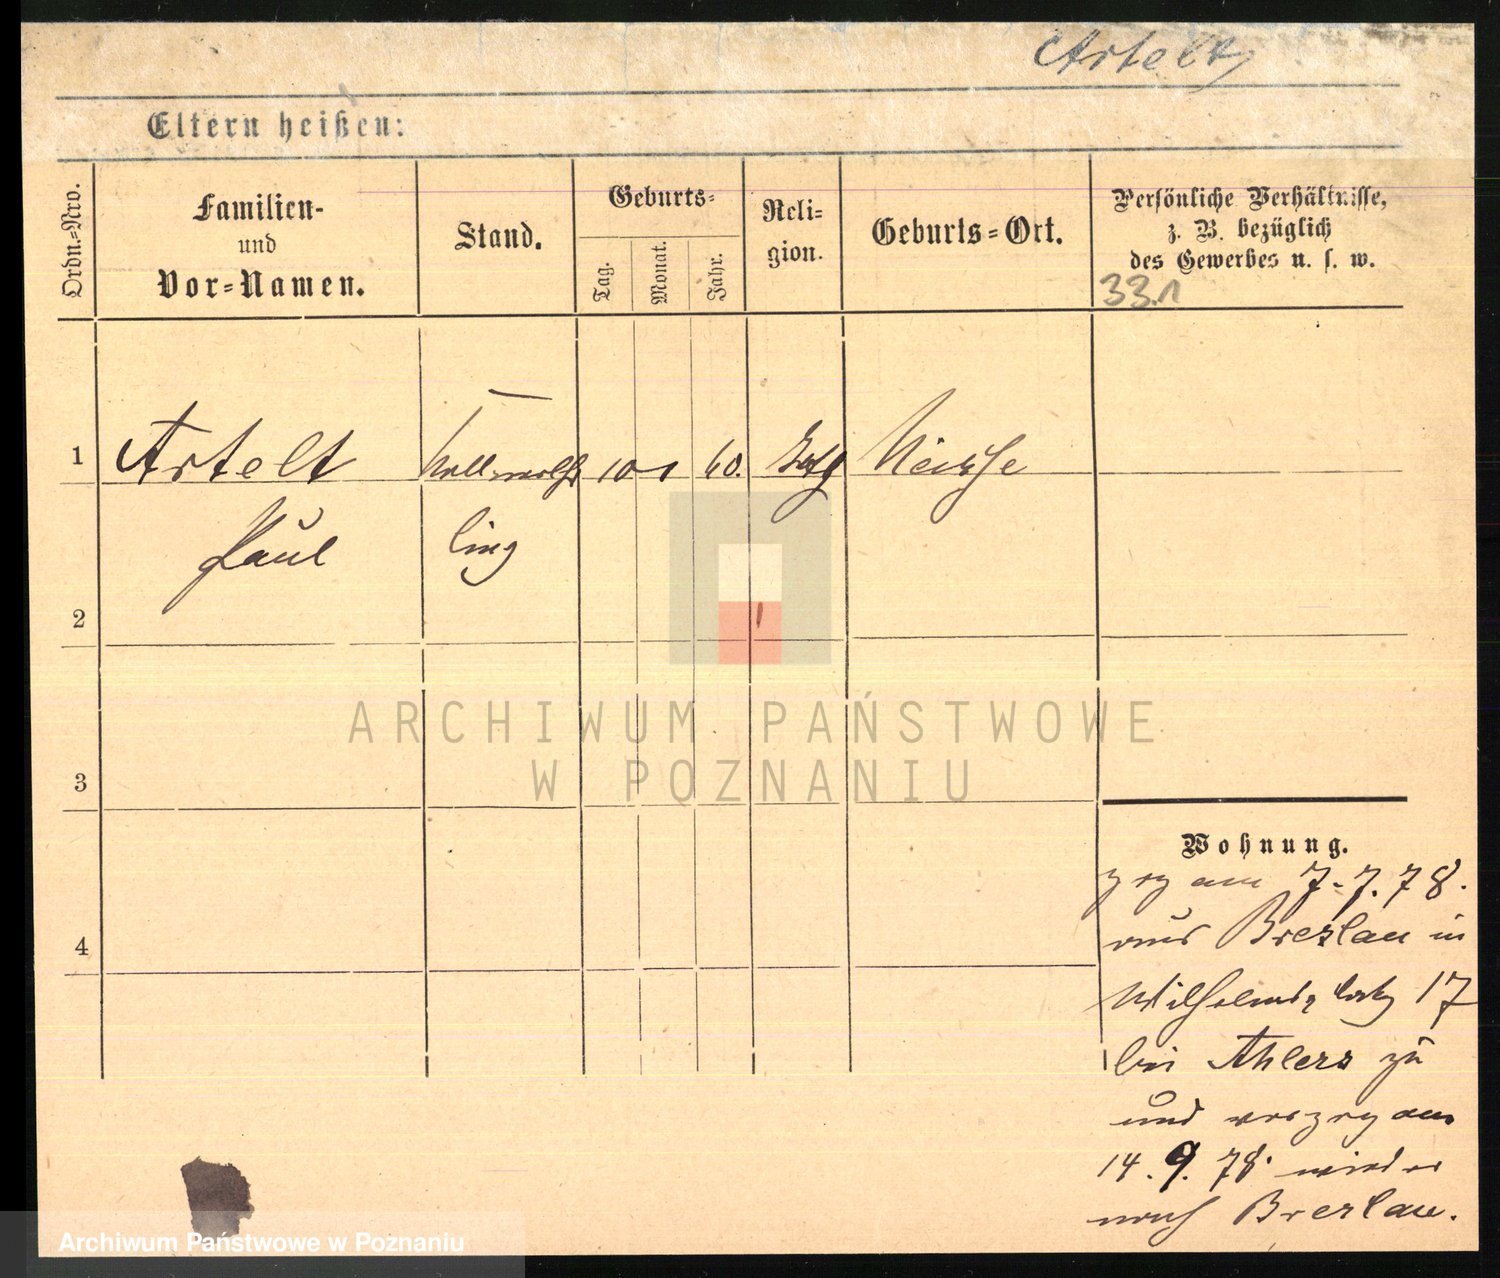 Artelt
Eltern heißen:
Ordn.-Nro.
Familien-
und
Vor-Namen.
Stand.
Geburts-
Tag.
Monat.
Jahr.
Reli-
gion.
Geburts-Ort.
Persönliche Verhältnisse,
z. B. bezüglich
des Gewerbes u. s. w.
33.1
1
Artelt
10 1 60.
Neisse
Paul
ling
2
3
4
ARCHIWUM PAŃSTWOWE
W POZNANIU
Wohnung.
zog am 7.7.78.
aus Breslau in
Wilhelmsplatz 17
bei Ahlers zu
und verzog am
14.9.78. wieder
nach Breslau.
Archiwum Państwowe w Poznaniu